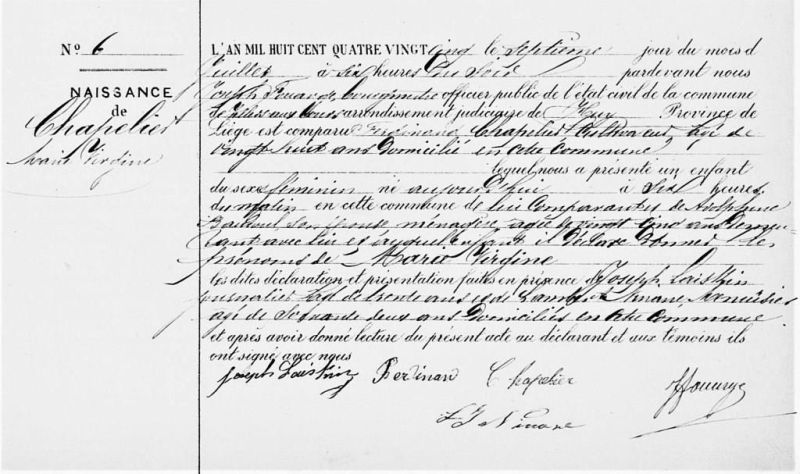 N° 6
NAISSANCE
de
Chapelier
Marie Virgine
L'AN MIL HUIT CENT QUATRE VINGT cinq le septième jour du mois d
Juillet à six heures du soir pardevant nous
Joseph bourgmestre officier public de l'état civil de la commune
de arrondissement judiciaire de Huy Province de
Liége est comparu Ferdinand Chapelier Cultivateur, âgé de
vingt huit ans domicilié en cette commune
lequel nous a présenté un enfant
du sexe féminin né aujourd'hui à six heures
du matin en cette commune de lui comparant et de
son épouse ménagère, agée de vingt cinq ans demeu
rant avec lui et auquel enfant il déclare donner les
prénoms de Marie Virgine
les dites déclaration et présentation faites en présence de Joseph
journalier âgé de trente ans et de Lambert Ninane, Menuisier
agé de soixante deux ans domiciliés en cette commune
et après avoir donné lecture du présent acte au déclarant et aux témoins ils
ont signé avec nous
Joseph Ferdinand Chapelier
L J Ninane